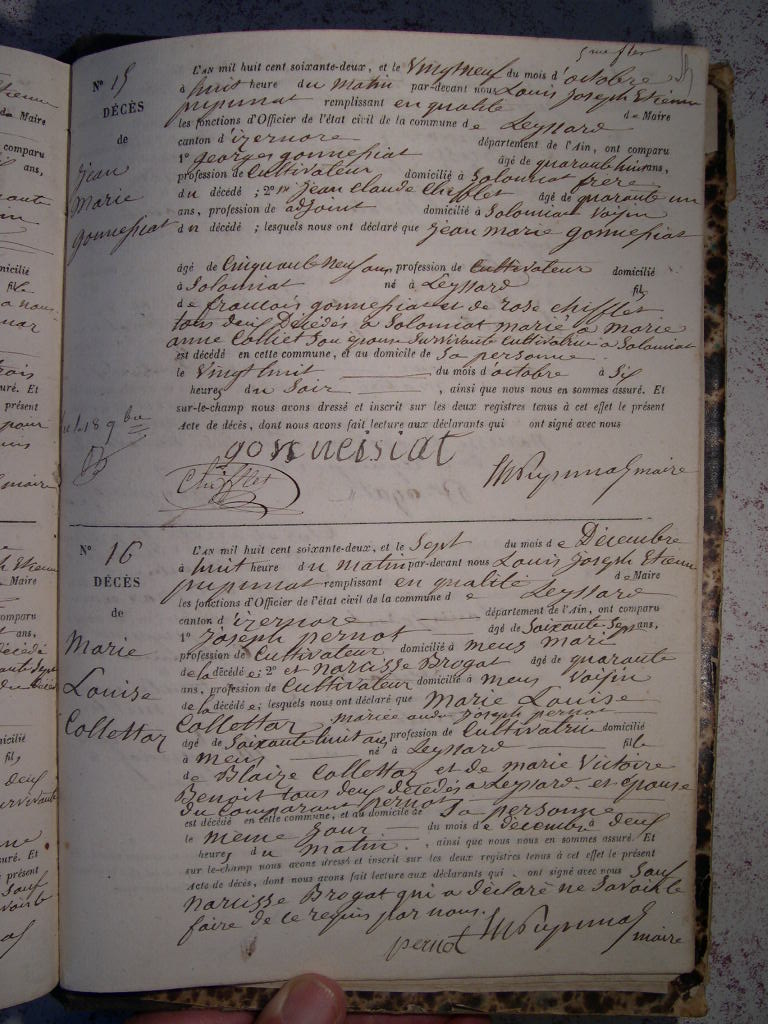 5me flet
N° 15
DÉCÈS
de
Jean
Marie
gonnessiat
L'AN mil huit cent soixante-deux, et le Vingt neuf du mois d'octobre
à huit heure du Matin par-devant nous Louis Joseph Etienne
pupunat remplissant en qualité de Maire
les fonctions d'Officier de l'état civil de la commune de Leyssard
canton d'izernore département de l'Ain, ont comparu
1° georges gonnessiat âgé de quarante huit ans,
profession de Cultivateur domicilié à Solomiat frere
du décédé ; 2° Jean Claude Chifflet âgé de quarante un
ans, profession de adjoint domicilié à Solomiat Voisin
du décédé ; lesquels nous ont déclaré que jean marie gonnessiat
âgé de Cinquante Neuf ans profession de Cultivateur domicilié
à Solomiat né à Leyssard fils
de francois gonnessiat et de rose chifflet
tous deux Décédés a Solomiat marié a Marie
anne Colliet Son épouse Survivante Cultivatrice a Solomiat
est décédé en cette commune, et au domicile de Sa personne
le Vingt huit du mois d'octobre à Six
heures du Soir , ainsi que nous nous en sommes assuré. Et
sur-le-champ nous avons dressé et inscrit sur les deux registres tenus à cet effet le présent
Acte de décès, dont nous avons fait lecture aux déclarants qui ont signé avec nous
gonneisiat
Chifflet
pupunat maire
N° 16
DÉCÈS
de
Marie
Louise
Collettaz
L'AN mil huit cent soixante-deux, et le Sept du mois de Décembre
à huit heure du matin par-devant nous Louis Joseph Etienne
pupunat remplissant en qualité de Maire
les fonctions d'Officier de l'état civil de la commune de Leyssard
canton d'izernore département de l'Ain, ont comparu
1° Joseph pernot âgé de Soixante Sept ans,
profession de Cultivateur domicilié à meus mari
de la décédée ; 2° et Narcisse Brogat âgé de quarante
ans, profession de Cultivateur domicilié à meus Voisin
de la décédée ; lesquels nous ont déclaré que Marie Louise
Collettaz mariée audit Joseph pernot
âgé de Soixante huit ans profession de Cultivatrice domicilié
à meus né à Leyssard fille
de Blaize Collettaz et de marie Victoire
Benoit tous deux décédés a Leyssard et épouse
du Comparant pernot
est décédé en cette commune, et au domicile de Sa personne
le même jour du mois de décembre à deux
heures du matin , ainsi que nous nous en sommes assuré. Et
sur-le-champ nous avons dressé et inscrit sur les deux registres tenus à cet effet le présent
Acte de décès, dont nous avons fait lecture aux déclarants qui ont signé avec nous Sauf
narcisse Brogat qui a déclaré ne Savoir le
faire de ce requis par nous.
pernot
pupunat maire